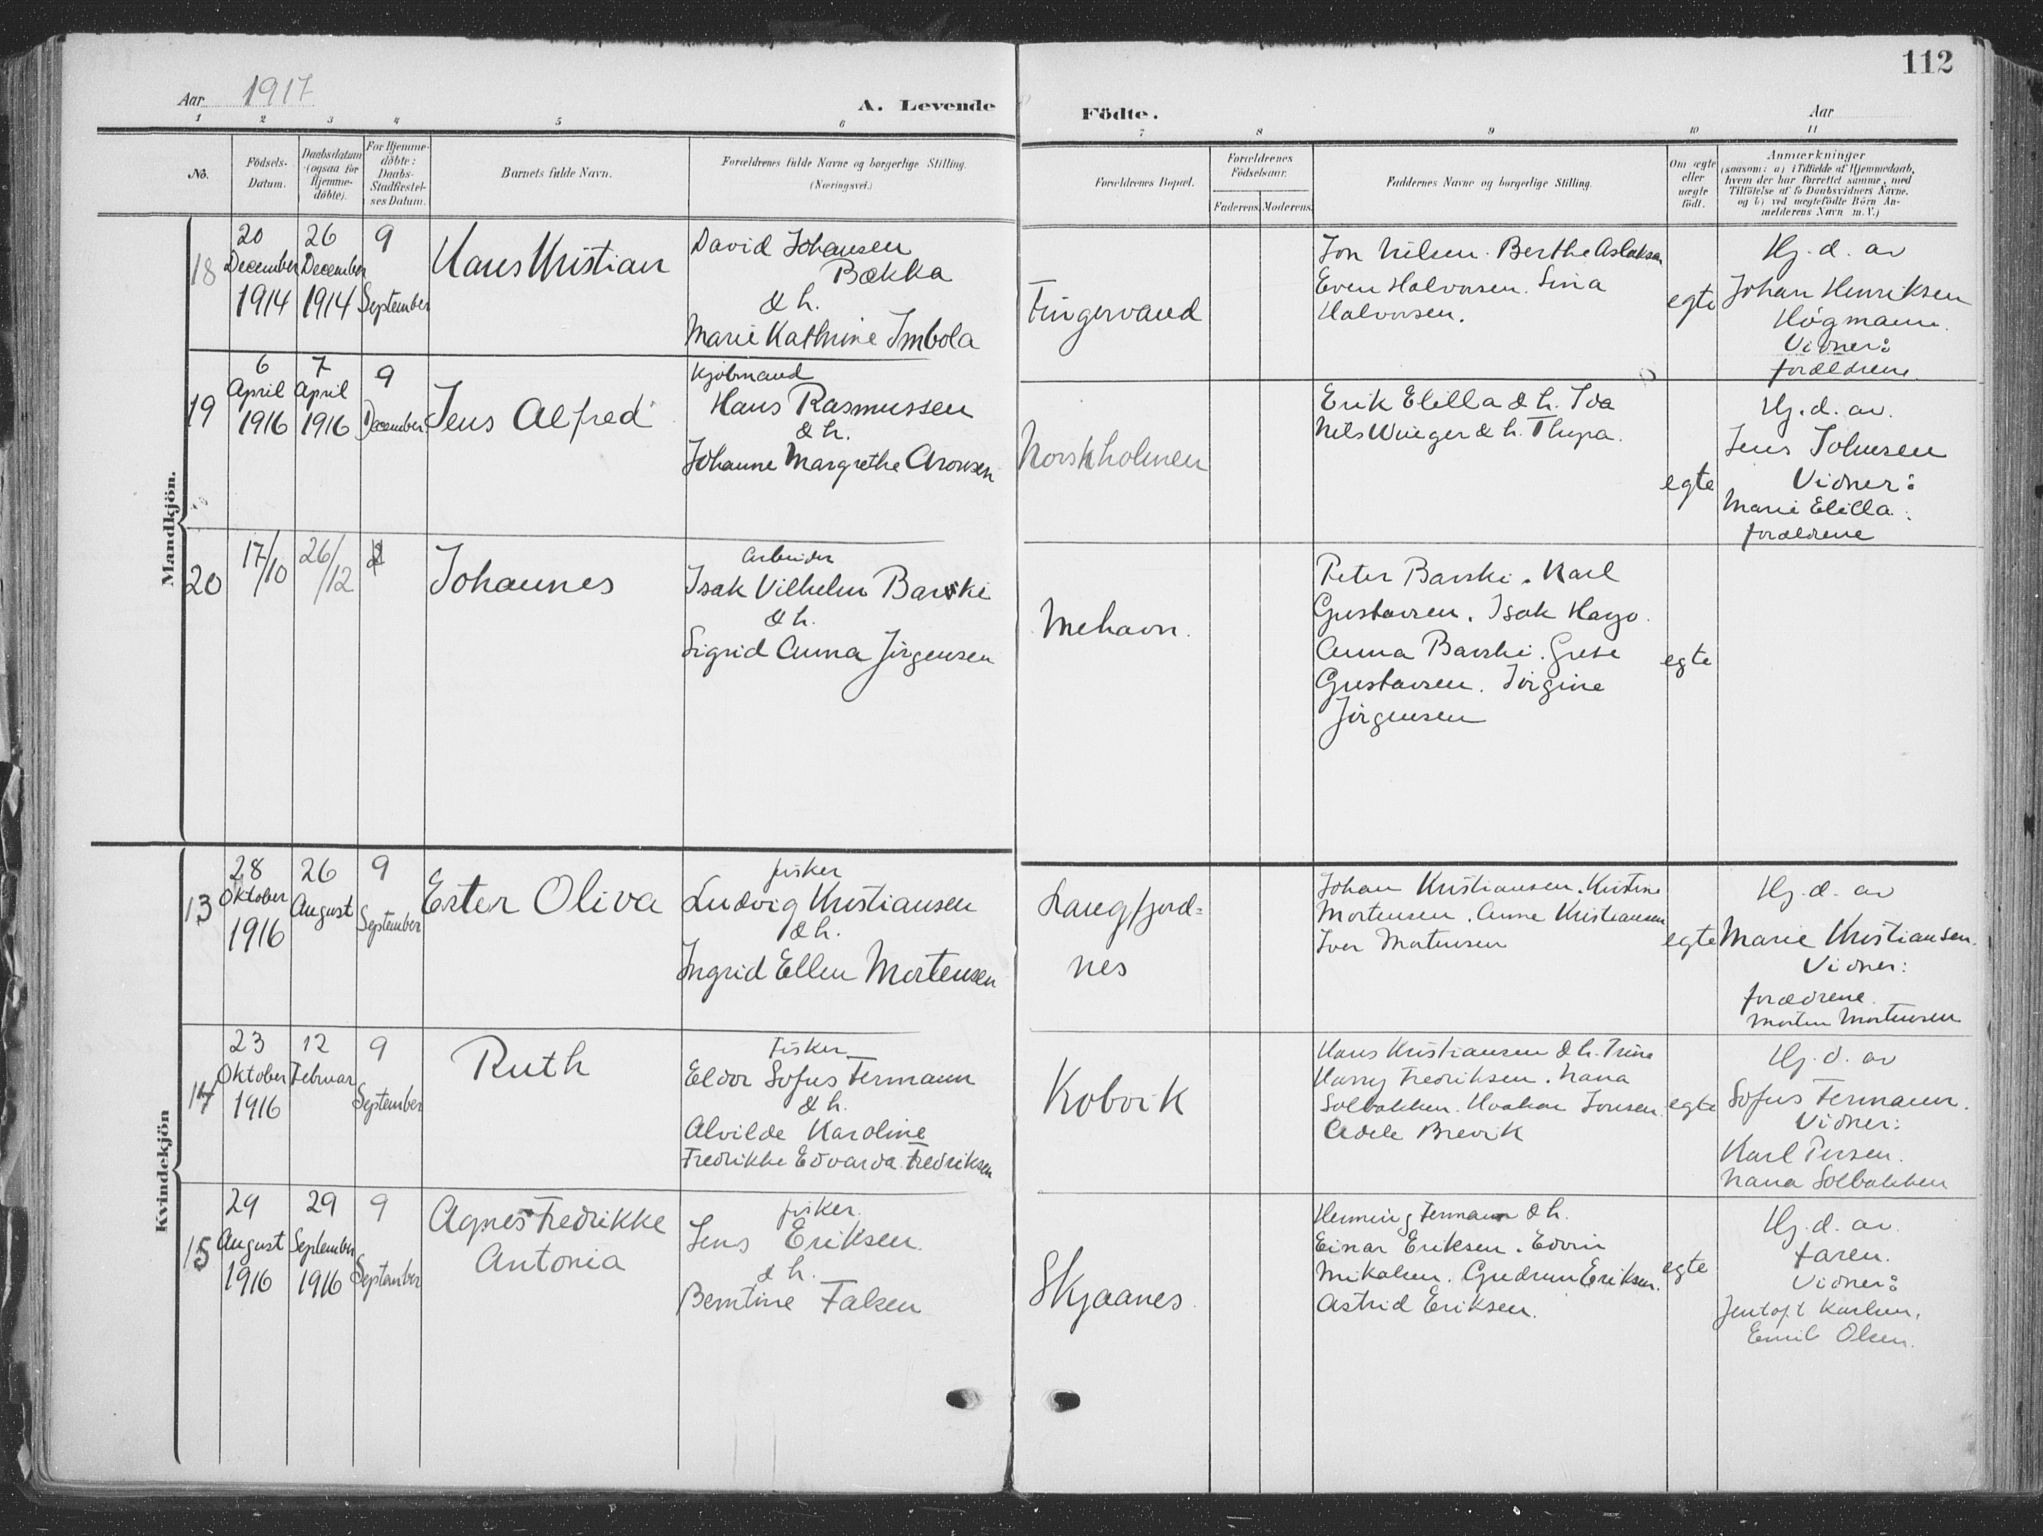 112
Aar 1917
A. Levende
Födte.
Aar
1 2 3 4 5 6 7 8 9 10 11
No.
Födsels-
Datum.
Daabsdatum
(ogsaa for
Hjemme-
döbte).
For Hjemme-
döbte:
Daabs-
Stadfæstel-
ses Datum.
Barnets fulde Navn.
Forældrenes fulde Navne og borgerlige Stilling.
(Næringsvei.)
Forældrenes Bopæl.
Forældrenes
Födselsaar.
Faderens. Moderens.
Faddernes Navne og borgerlige Stilling.
Om ægte
eller
uægte
födt.
Anmærkninger
(saasom: a) i Tilfælde af Hjemmedaab,
hvem der har forrettet samme, med
Tilföielse af to Daabsvidners Navne,
og b) ved uægtefödte Börn An-
melderens Navn m. V.)
Mandkjön.
18
20
December
1914
26
December
1914
9
September
Hans Kristian
David Johansen
Bækka
& h.
Marie Kathrine Imbola
Fingervand
Jon Nilsen. Berthe Aslaksen
Even Halvorsen. Sina
Halvorsen.
egte
Hj. d. av
Johan Henriksen
Høgmann.
Vidner:
forældrene.
19
6
April
1916
7
April
1916
9
December
Jens Alfred
Kjøbmand
Hans Rasmussen
& h.
Johanne Margrethe Aronsen
Norskholmen
Erik Elilla & h. Ida
Nils Winger & h. Thyra.
egte
Hj. d. av.
Jens Johnsen
Vidner:
Marie Elilla.
forældrene
20
17/10
26/12
Johannes
Arbeider
Isak Vilhelm Barski
& h.
Sigrid Anna Jørgensen
Mehavn.
Peter Barski. Karl
Gustavsen. Isak Hago.
Anna Barski. Grete
Gustavsen. Jørgine
Jørgensen
egte
Kvindekjön
13
28
Oktober
1916
26
August
9
September
Ester Oliva
fisker
Ludvig Kristiansen
& h.
Ingrid Ellen Mortensen
Langfjord-
nes
Johan Kristiansen. Kristine
Mortensen. Anne Kristiansen
Iver Mortensen
egte
Hj. d. av
Marie Kristiansen.
Vidner:
forældrene.
Morten Mortensen
14
23
Oktober
1916
12
Februar
9
September
Ruth
Fisker
Eldor Sofus Fermann
& h.
Alvilde Karoline
Fredrikke Edvarda Fredriksen
Kobvik
Hans Kristiansen & h. Trine
Harry Fredriksen. Nana
Solbakken. Haakon Jonsen.
Adele Brevik
egte
Hj. d. av
Sofus Fermann.
Vidner:
Karl Persen.
Nana Solbakken
15
29
August
1916
29
September
1916
9
September
Agnes Fredrikke
Antonia
fisker.
Jens Eriksen.
& h.
Berntine Falsen
Skjaanes
Henning Fermann & h.
Einar Eriksen. Edvin
Mikalsen. Gudrun Eriksen.
Astrid Eriksen.
egte
Hj. d. av.
faren.
Vidner:
Jentoft Karlsen.
Emil Olsen.